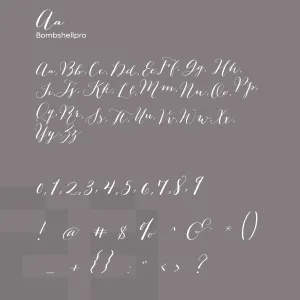 Aa
Bombshellpro
Aa, Bb, Cc, Dd, Ee Ff, Gg, Hh,
Ii, Jj, Kk, Ll, Mm, Nn, Oo, Pp,
Qq, Rr, Ss, Tt, Uu, Vv, Ww, Xx,
Yy, Zz
0, 1, 2, 3, 4, 5, 6, 7, 8, 9
! @ # $ % ^ & * ()
_ + {} : " < > ?